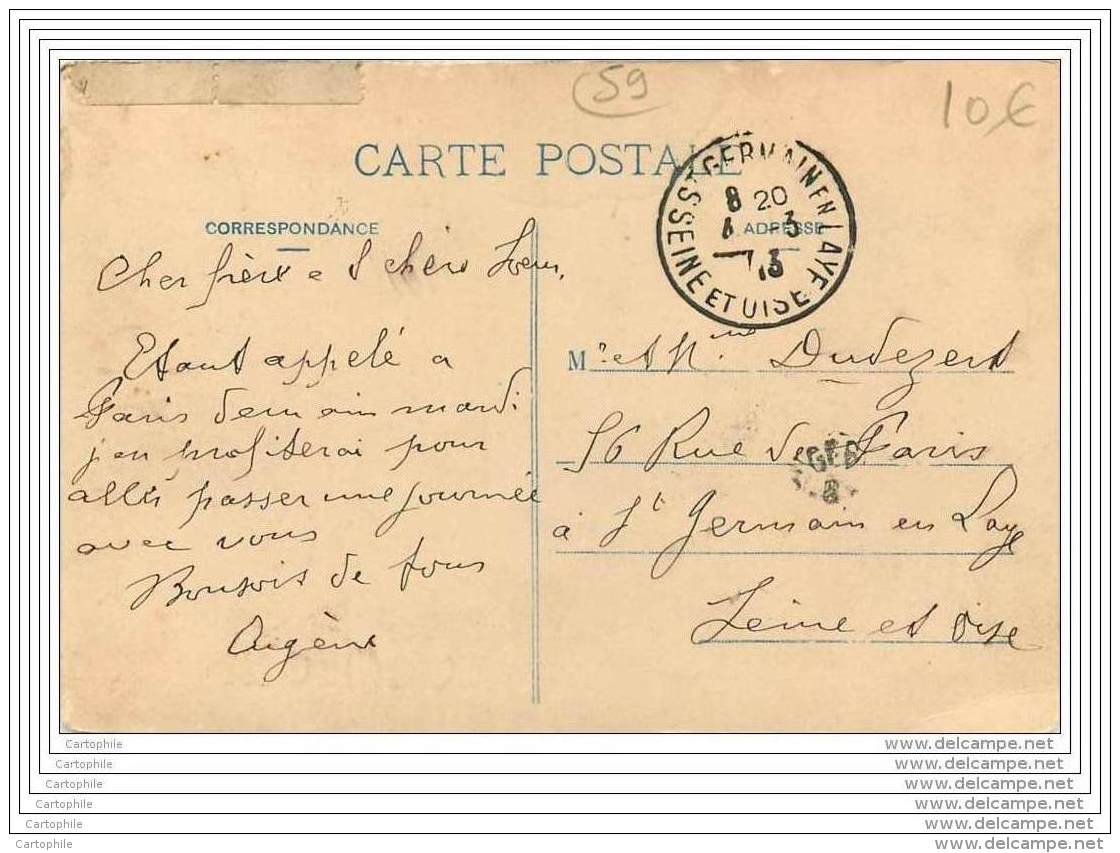 59
10€
CARTE POSTALE
ST GERMAIN EN LAYE
8 20
-3
13
SEINE ET OISE
CORRESPONDANCE
ADRESSE
Cher frère e t chère Soeur,
Etant appelé a
Paris demain mardi
j'en profiterai pour
aller passer une journée
avec vous
Bonsoir de tous
Mr et Mme Dudezert
56 Rue de Paris
à St Germain en Laye
Seine et Oise
Cartophile
www.delcampe.net
Cartophile
www.delcampe.net
Cartophile
www.delcampe.net
Cartophile
www.delcampe.net
Cartophile
www.delcampe.net
Cartophile
www.delcampe.net